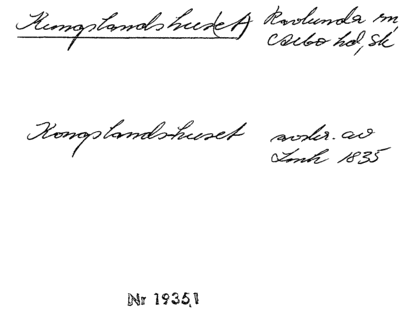 Kungslandshuset) Ravlunda sn,
Albo hd, Sk
Kongslandshuset avskr. av
Lmk 1835
Nr 1935,1